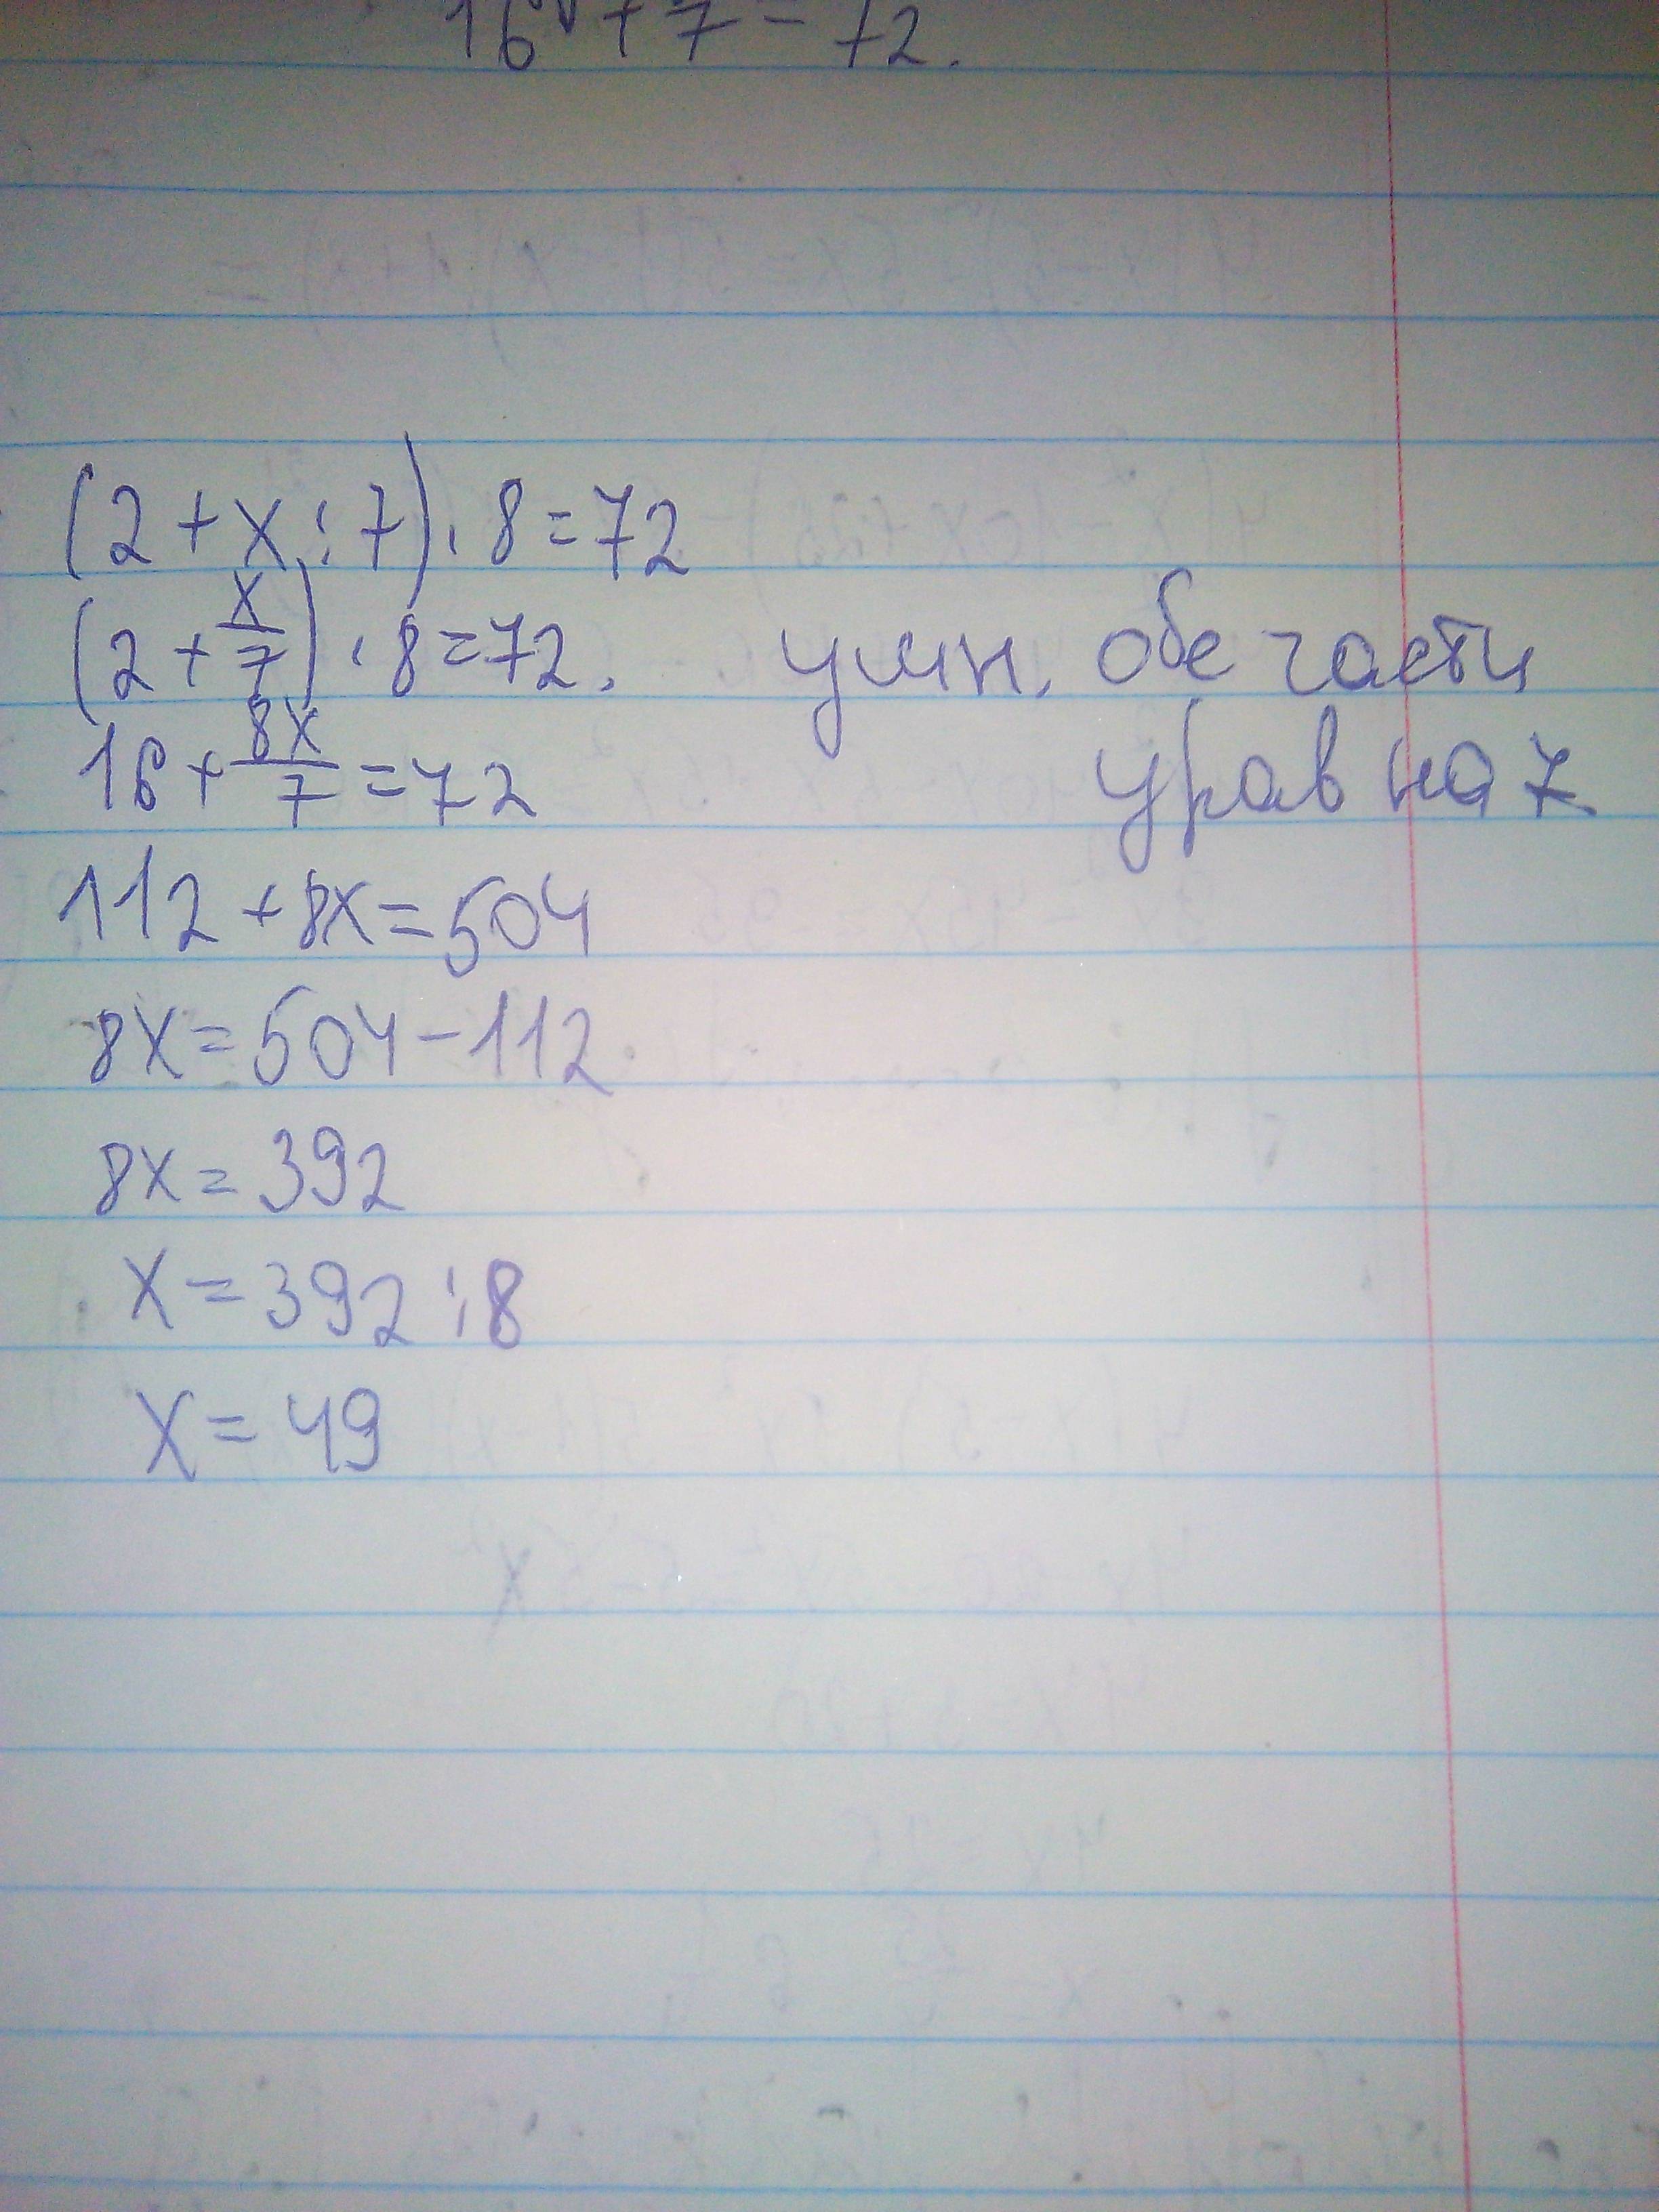 16 + 7 = 72.
(2 + x : 7) · 8 = 72
(2 + x/7) · 8 = 72. умн. обе части
16 + 8x/7 = 72 урав на 7
112 + 8x = 504
8x = 504 - 112
8x = 392
x = 392 : 8
x = 49